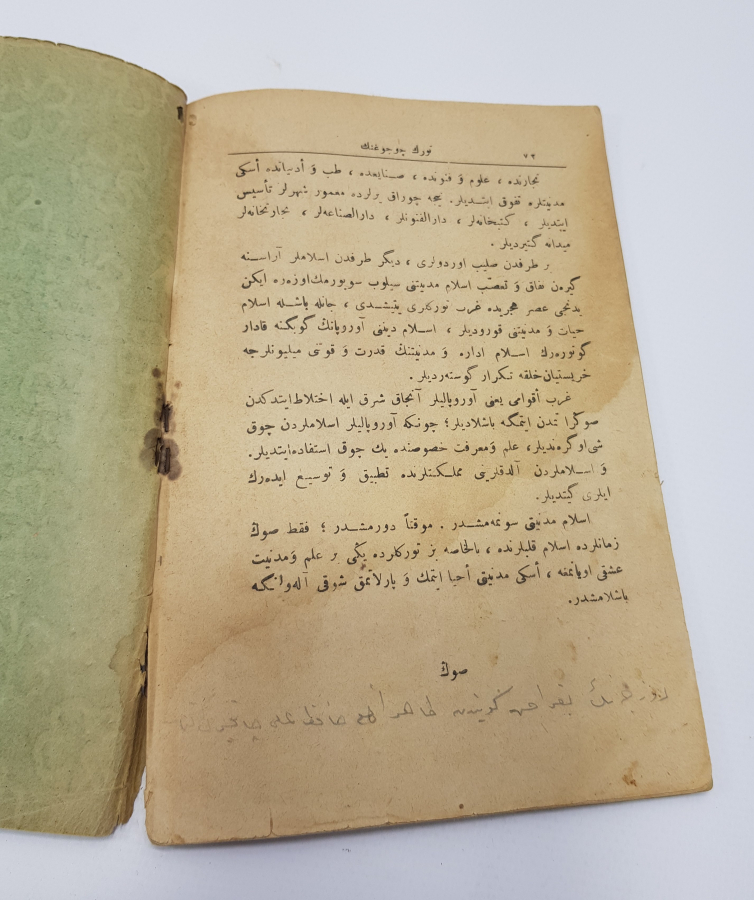 ٧٢
تورك چوجوغنك
تجارتده ، علوم و فنونده ، صنايعده ، طب و أدبياتده أسكى
مدنيتلره تفوق ايتـديلر. نيجه چوراق يرلرده معمور شهرلر تأسيس
ايتديلر ، كتبخانه‌لر ، دارالفنونلر ، دارالصناعه‌لر ، تجارتخانه‌لر
ميدانه گتيرديلر .
بر طرفدن صليب اوردولرى ، ديگر طرفدن اسلاملر آراسـنه
گيره‌ن نفاق و تعصّب اسلام مدنيتنى سيلوب سوپورمك‌اوزه‌ره ايكن
يدنجى عصر هجريده غرب توركلرى يتيشـدى ، جانله باشـله اسلام
حيات و مدنيتنى قوروديلر ، اسـلام دينى آوروپانڭ گوبگنه قادار
گوتوره‌رك اسـلام اداره و مدنيتنڭ قدرت و قوتنى ميليونلرجه
خريستيان‌خلقه تكرار گوسته‌رديلر .
غرب أقوامى يعنى آوروپاليلر آنجاق شرق ايله اختلاط‌ايتدكدن
صوڭرا تمدن ايتمگه باشلاديلر؛ چونكه آوروپاليلر اسلاملردن چوق
شى‌اوگره‌نديلر، علم ومعرفت خصوصنده پك چوق استفاده‌ايتديلر.
و اسـلاملردن آلدقلرينى مملـكتلرنده تطبيق و توسيـع ايده‌رك
ايلرى گيتديلر.
اسلام مدنيتى سونمه‌مشـدر . موقتاً دورمشـدر ؛ فقط صوڭ
زمانلرده اسلام قلبلرنده ، بالخاصه بز توركلرده يڭى بر علم ومدنيت
عشقى اويانمغه ، أسكى مدنيتى أحيا ايتمك و پارلاتمق شوقى آلەولنمگه
باشلامشدر.
صوڭ
طاهر حافظ على